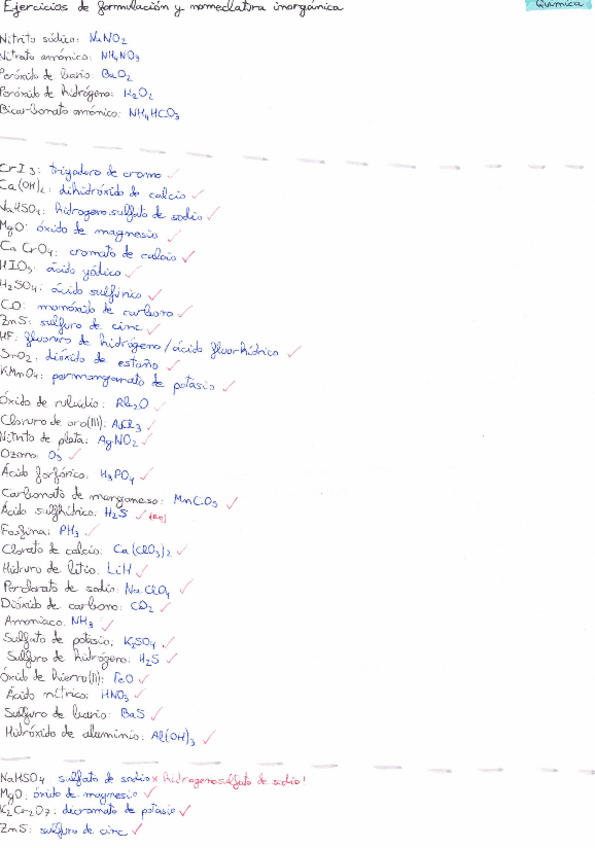 Ejercicios de formulación y nomeclatura inorgánica
Química
Nitrito sódico: NaNO2
Nitrato amónico: NH4NO3
Peróxido de bario: BaO2
Peróxido de hidrógeno: H2O2
Bicarbonato amónico: NH4HCO3
CrI3: triyoduro de cromo ✓
Ca(OH)2: dihidróxido de calcio ✓
NaHSO4: hidrogenosulfato de sodio ✓
MgO: óxido de magnesio ✓
CaCrO4: cromato de calcio ✓
HIO3: ácido yódico ✓
H2SO4: ácido sulfúrico ✓
CO: monóxido de carbono ✓
ZnS: sulfuro de cinc ✓
HF: fluoruro de hidrógeno / ácido fluorhídrico ✓
SnO2: dióxido de estaño ✓
KMnO4: permanganato de potasio ✓
Óxido de rubidio: Rb2O ✓
Cloruro de oro(III): AuCl3 ✓
Nitrito de plata: AgNO2 ✓
Ozono: O3 ✓
Ácido fosfórico: H3PO4 ✓
Carbonato de manganeso: MnCO3 ✓
Ácido sulfhídrico: H2S ✓ (aq)
Fosfina: PH3 ✓
Clorato de calcio: Ca(ClO3)2 ✓
Hidruro de litio: LiH ✓
Perclorato de sodio: NaClO4 ✓
Dióxido de carbono: CO2 ✓
Amoniaco: NH3 ✓
Sulfato de potasio: K2SO4 ✓
Sulfuro de hidrógeno: H2S ✓
Óxido de hierro(II): FeO ✓
Ácido nítrico: HNO3 ✓
Sulfuro de bario: BaS ✓
Hidróxido de aluminio: Al(OH)3 ✓
NaHSO4 sulfato de sodio x hidrogenosulfato de sodio!
MgO: óxido de magnesio ✓
K2Cr2O7: dicromato de potasio ✓
ZnS: sulfuro de cinc ✓